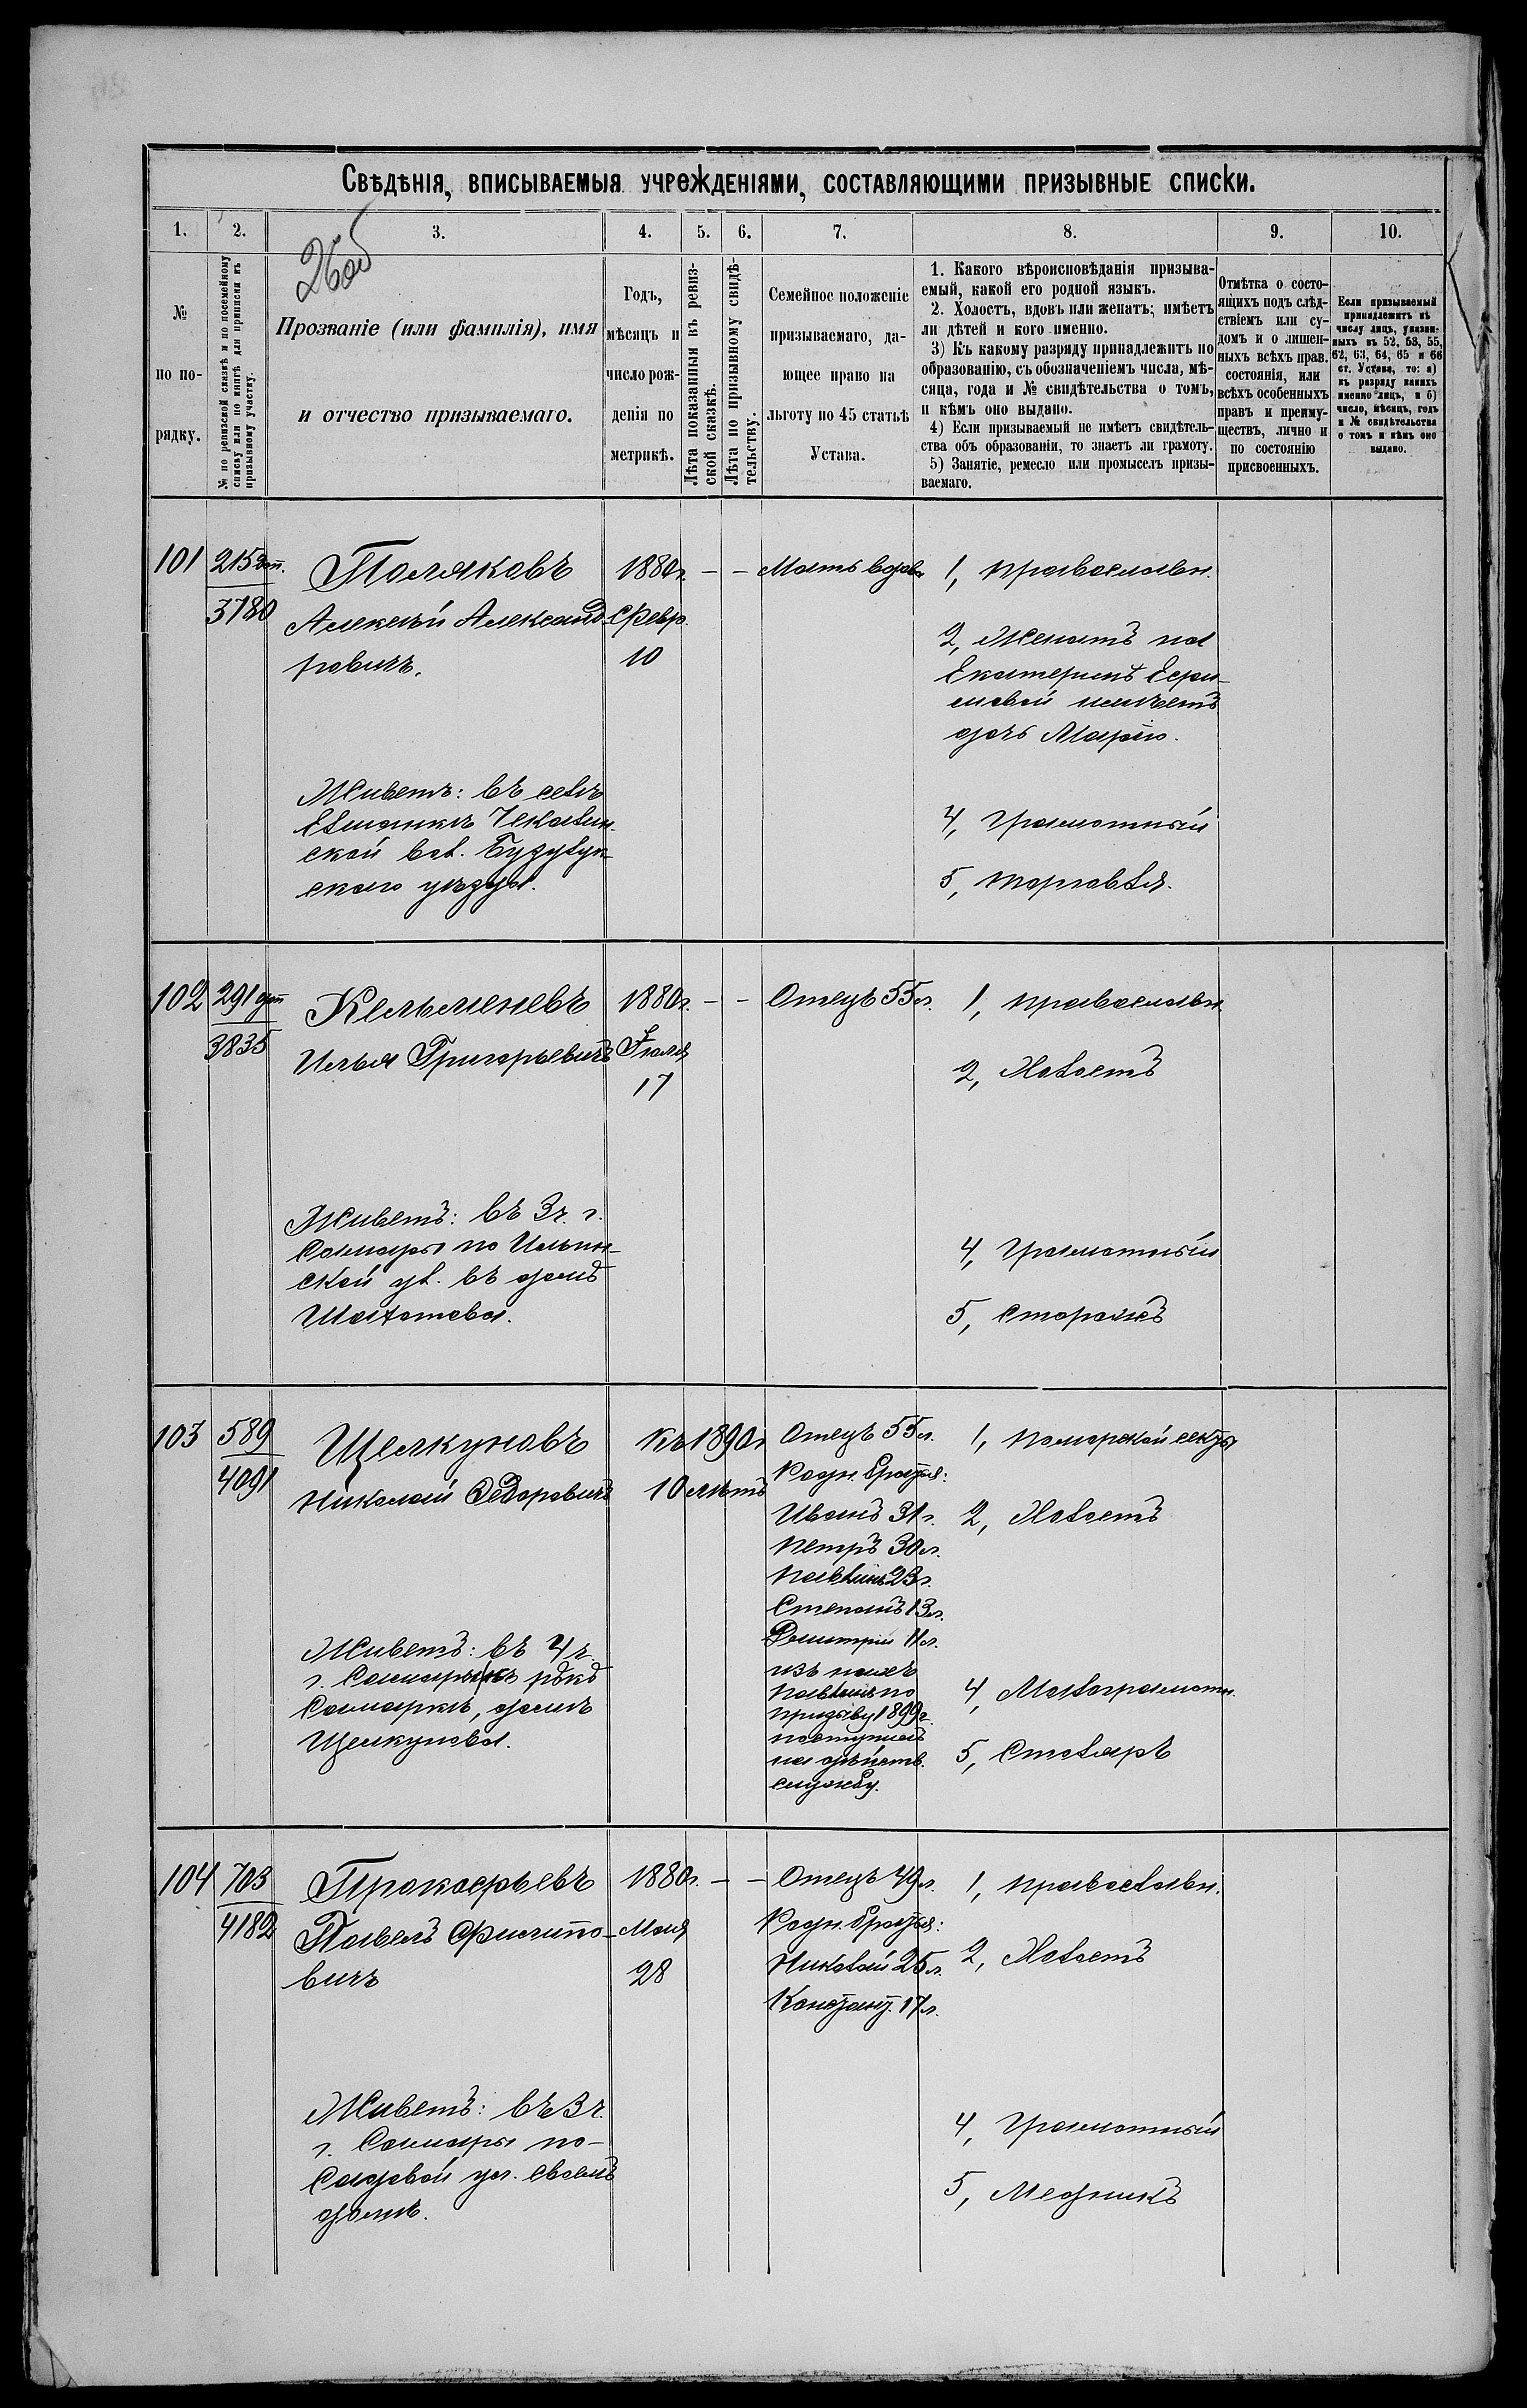 Свѣдѣнія, вписываемыя учрежденіями, составляющими призывные списки.
1. 2. 3. 4. 5. 6. 7. 8. 9. 10.
26об
№
по по-
рядку.
№ по ревизской сказкѣ и по посемейному
списку или по книгѣ для приписки къ
призывному участку.
Прозваніе (или фамилія), имя
и отчество призываемаго.
Годъ,
мѣсяцъ и
число рож-
денія по
метрикѣ.
Лѣта показанныя въ ревиз-
ской сказкѣ.
Лѣта по призывному свидѣ-
тельству.
Семейное положеніе
призываемаго, да-
ющее право на
льготу по 45 статьѣ
Устава.
1. Какого вѣроисповѣданія призыва-
емый, какой его родной языкъ.
2. Холостъ, вдовъ или женатъ; имѣетъ
ли дѣтей и кого именно.
3) Къ какому разряду принадлежитъ по
образованію, съ обозначеніемъ числа, мѣ-
сяца, года и № свидѣтельства о томъ,
и кѣмъ оно выдано.
4) Если призываемый не имѣетъ свидѣтель-
ства объ образованіи, то знаетъ ли грамоту.
5) Занятіе, ремесло или промыселъ призы-
ваемаго.
Отмѣтка о состо-
ящихъ подъ слѣд-
ствіемъ или су-
домъ и о лишен-
ныхъ всѣхъ прав.
состоянія, или
всѣхъ особенныхъ
правъ и преиму-
ществъ, лично и
по состоянію
присвоенныхъ.
Если призываемый
принадлежитъ къ
числу лицъ, указан-
ныхъ въ 52, 53, 55,
62, 63, 64, 65 и 66
ст. Устава, то: а)
къ разряду какихъ
именно лицъ, и б)
число, мѣсяцъ, годъ
и № свидѣтельства
о томъ и кѣмъ оно
выдано.
101
215 доп.
3780
Поляковъ
Алексѣй Александ-
ровичъ.
Живетъ: въ селѣ
Елшанкѣ
ской вол. Бузулук-
скаго уѣзда.
1880 г.
Февр.
10
— —
Мать вдова
1, православн.
2, Женатъ на
Екатеринѣ Ефи-
мовой имѣетъ
дочь Марію.
4, Грамотный
5, торговля.
102
291 доп
3835
Кельменевъ
Илья Григорьевичъ
Живетъ: въ 3 ч. г.
Самары по Ильин-
ской ул. въ домѣ
1880 г.
Іюля
17
— —
Отецъ 55 л.
1, православн.
2, Холостъ
4, Грамотный
5, Сторожъ
103
589
4091
Щелкуновъ
Николай Федоровичъ
Живетъ: въ 4 ч.
г. Самары къ рѣкѣ
Самаркѣ, домъ
Щелкунова.
Къ 1890 г
10 лѣтъ
Отецъ 55 л.
Родн. братья:
Иванъ 31 г.
Петръ 30 л.
Павлинъ 23 г.
Степанъ 13 л.
Дмитрій 11 л.
изъ нихъ
Павлинъ по
призыву 1899 г.
поступилъ
на дѣйств.
службу.
1, Поморской секты
2, Холостъ
4, Малограмотн.
5, Столяръ
104
703
4182
Прокофьевъ
Павелъ Филиппо-
вичъ
Живетъ: въ 3 ч.
г. Самары по-
Садовой ул. своемъ
домѣ.
1880 г.
Мая
28
— —
Отецъ 49 л.
Родн. братья:
Николай 25 л.
Констант. 17 л.
1, православн.
2, Холостъ
4, Грамотный
5, Медникъ